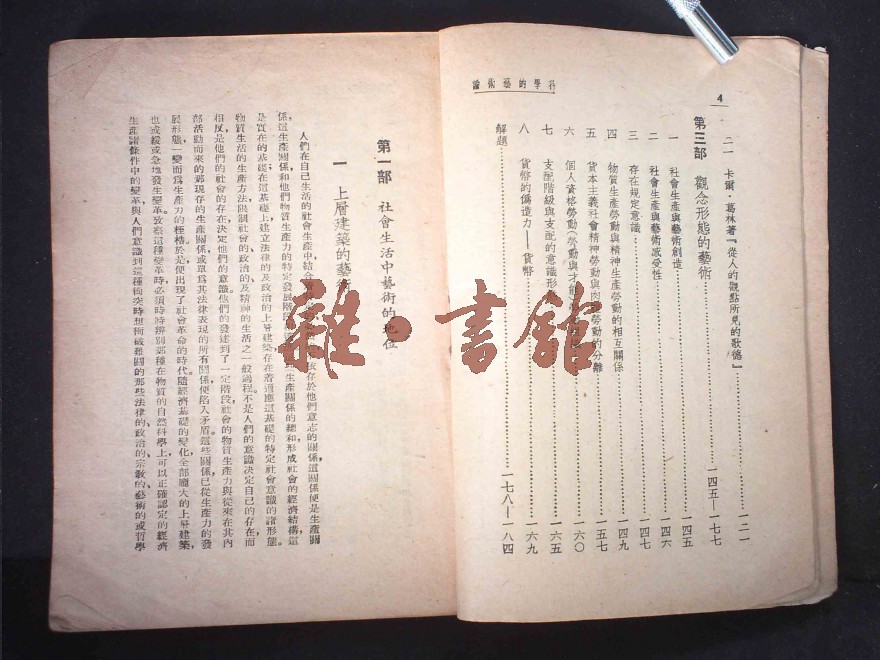 4
科學的藝術論
二一 卡爾·葛林著『從人的觀點所見的歌德』……一二一
第三部 觀念形態的藝術……一四五—一七七
一 社會生產與藝術創造……一四五
二 社會生產與藝術感受性……一四六
三 存在規定意識……一四七
四 物質生產勞動與精神生產勞動的相互關係……一四九
五 資本主義社會精神勞動與肉體勞動的分離……一五七
六 個人資格勞動(勞動與才能)……一六〇
七 支配階級與支配的意識形態……一六五
八 貨幣的僞造力——貨幣……一六九
解題……一七八—一八四
第一部 社會生活中藝術的地位
一 上層建築的藝術
人們在自己生活的社會生產中,結合着 依存於他們意志的關係,這關係便是生產關
係,這生產關係,和他們物質生產力的特定發展階段 生產關係的總和,形成社會的經濟結構,這
是實在的基礎;在這基礎上建立法律的及政治的上層建築,存在着適應這基礎的特定社會意識的諸形態。
物質生活的生產方法,限制社會的政治的及精神的生活之一般過程。不是人們的意識決定自己的存在,而
相反,是他們的社會的存在決定他們的意識。他們的發達到了一定階段,社會的物質生產力與從來在其內
部活動而來的那現存的生產關係,或單爲其法律表現的所有關係,便陷入矛盾。這些關係,已從生產力的發
展形態,一變而爲生產力的桎梏。於是便出現了社會革命的時代。隨經濟基礎的變化,全部龐大的上層建築,
也或緩或急地發生變革。考察這種變革時,必須時時辨別那種在物質的自然科學上,可以正確認定的經濟
生產諸條件中的變革,與人們意識到這種衝突時想衝破難關的那些法律的、政治的、宗教的、藝術的或哲學
雜·書館